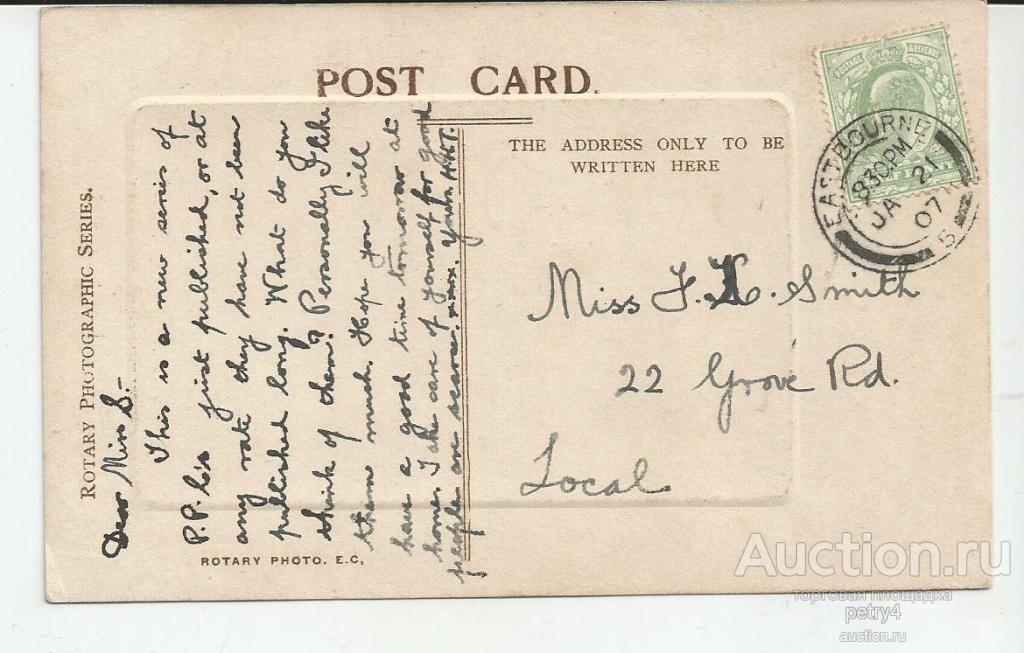 POST CARD.
THE ADDRESS ONLY TO BE
WRITTEN HERE
ROTARY PHOTOGRAPHIC SERIES.
Dear Miss S.-
This is a new series of
P.P.'s just published, or at
any rate they have not been
published long. What do you
think of them? Personally I like
them much. Hope you will
have a good time tomorrow at
home. Take care of yourself for good
people are scarce. Yours
ROTARY PHOTO. E.C.
POSTAGE & REVENUE
EASTBOURNE
830PM
JA 21
07
5
Miss F. K. Smith
22 Grove Rd.
Local
Auction.ru
торговая площадка
petry4
auction.ru